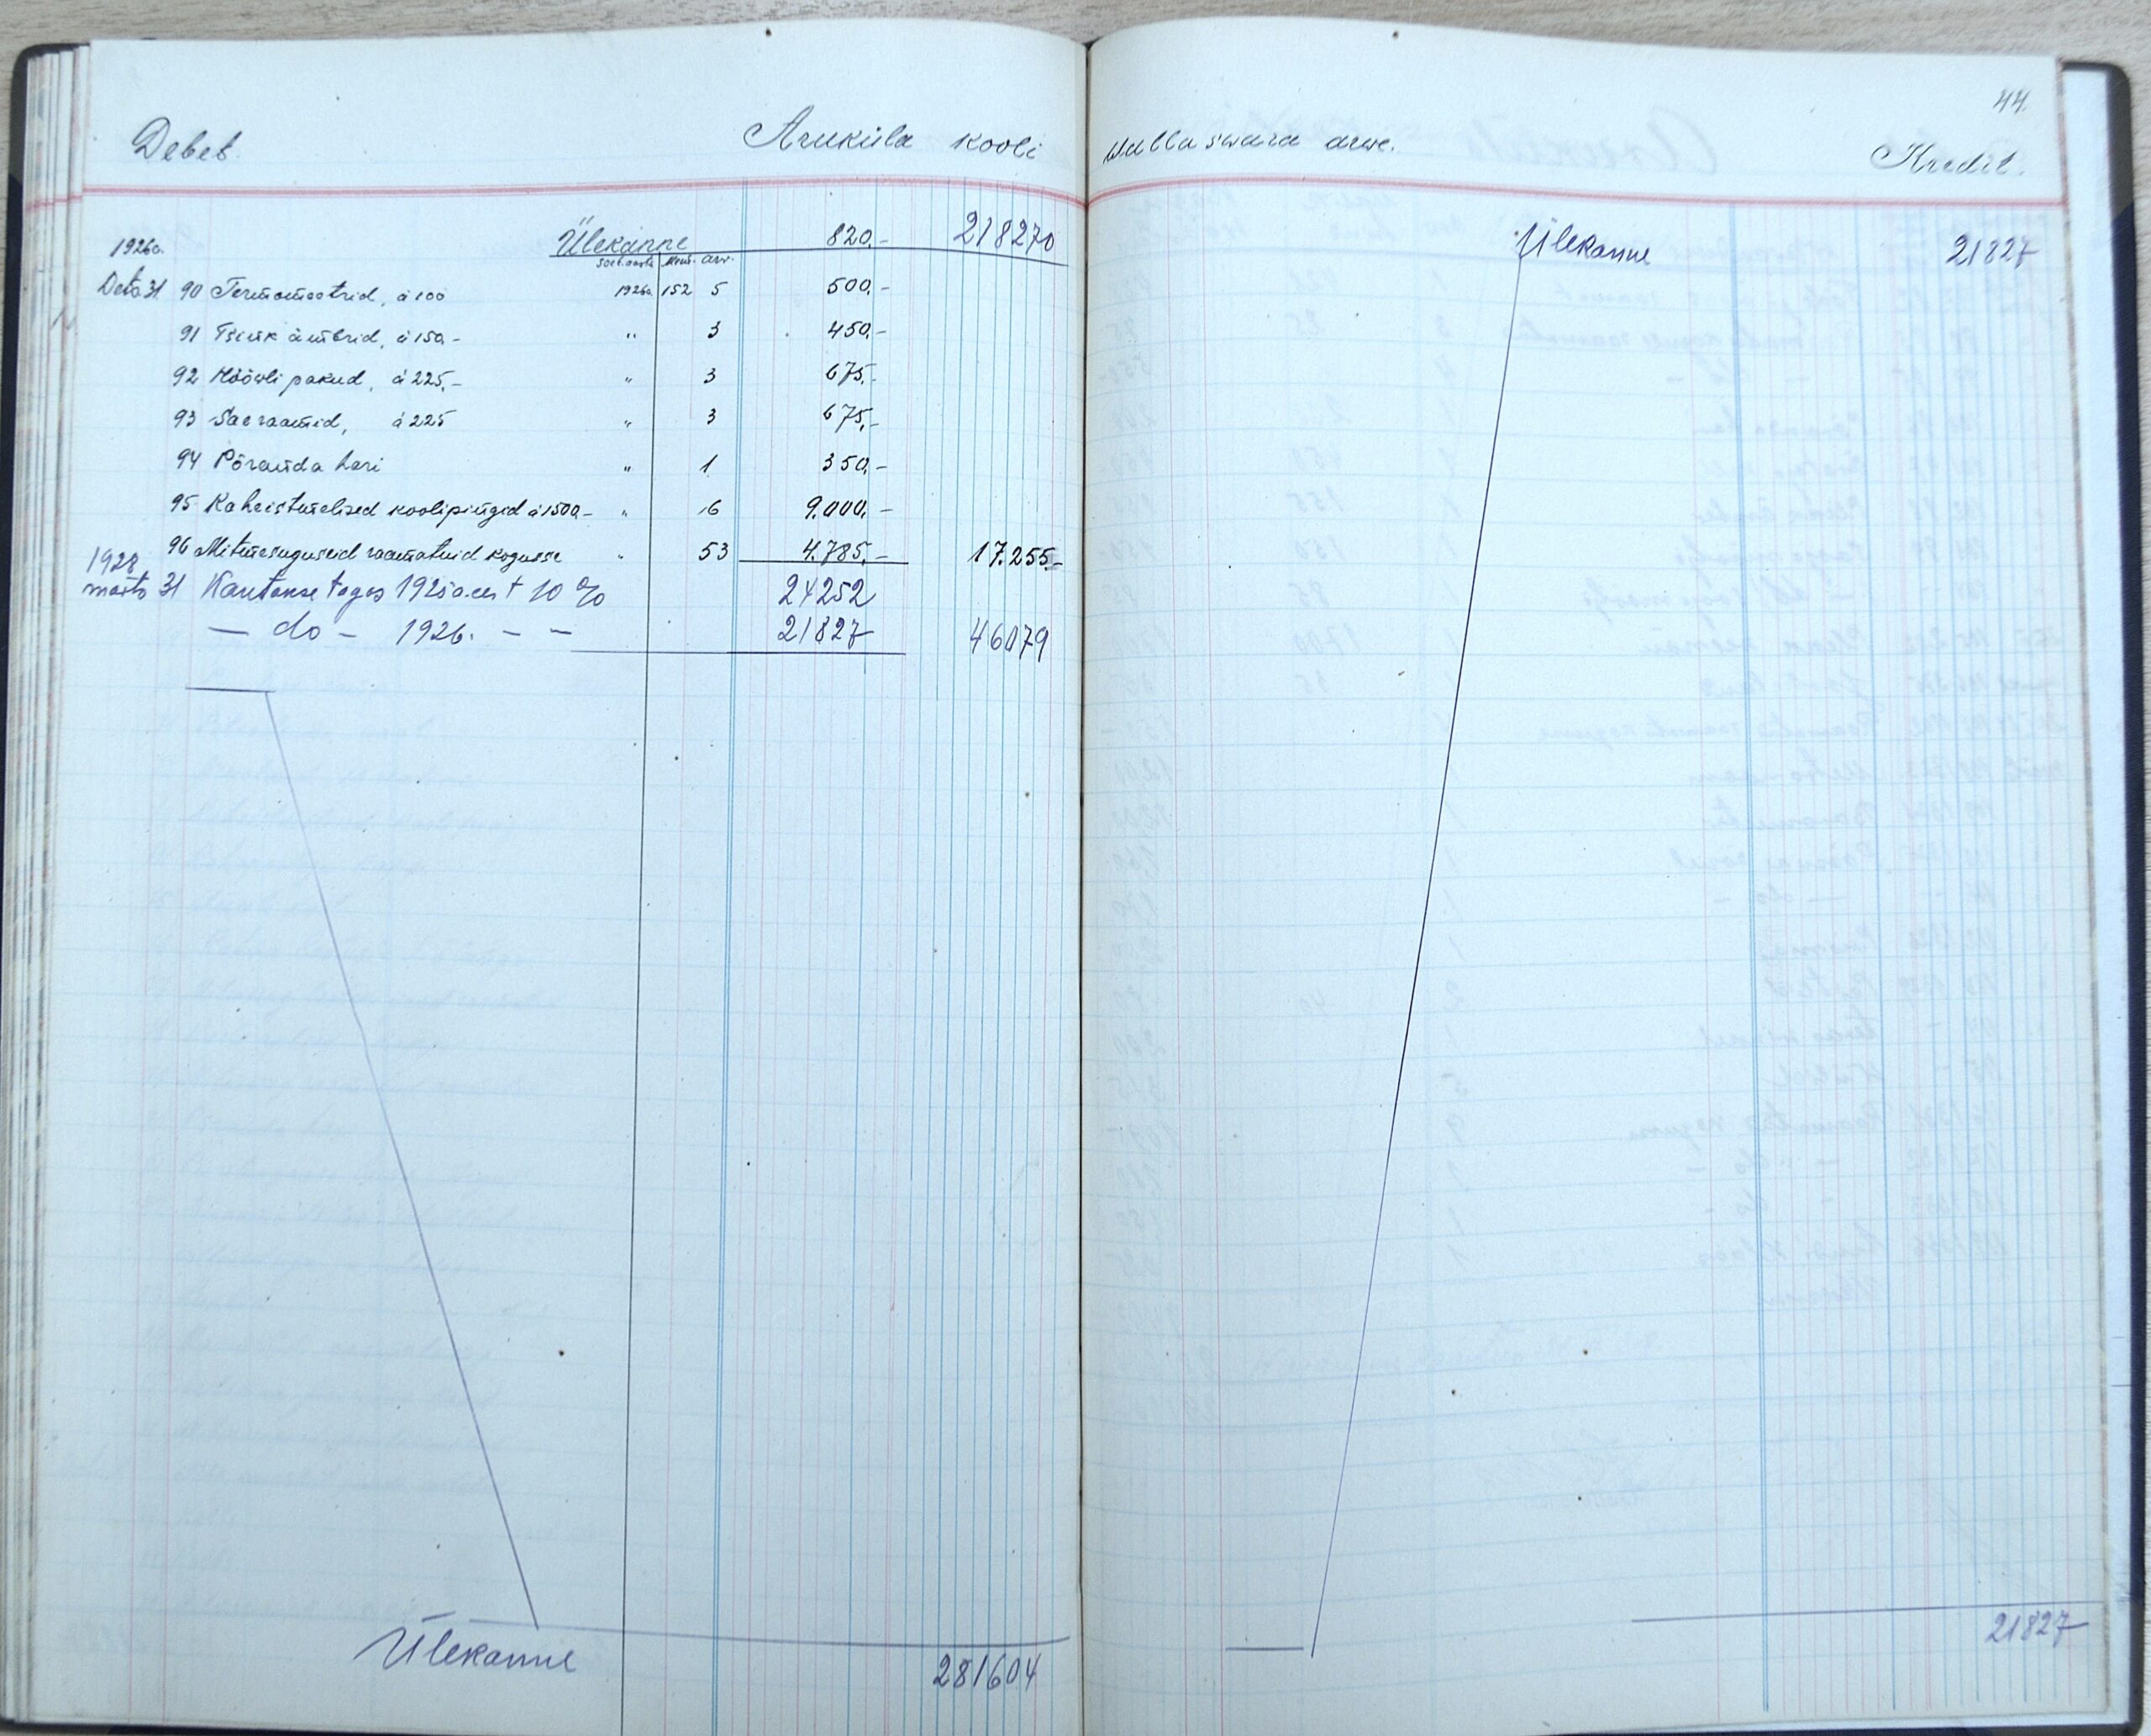 44.
Debet. Aruküla kooli wallaswara arwe. Kredit.
1926a. Ülekanne 820.- 218270
soet. aasta Mem. arv.
Dets. 31 90 Termomeetrid, á 100 1926a. 152 5 500.-
91 Tsink ämbrid, á 150.- " 3 450.-
92 Hööwli pakud, á 225.- " 3 675.-
93 Sae raamid, á 225 " 3 675.-
94 Põranda hari " 1 350.-
95 Kaheistmelised koolipingid á 1500.- " 6 9.000.-
96 Mitmesuguseid raamatuid kogusse " 53 4.785.- 17.255.-
1928
märts 31 Kantakse tagas 1925a. est 10% 24252
— do — 1926. — — 21827 46079
Ülekanne 281604
Ülekanne 21827
21827